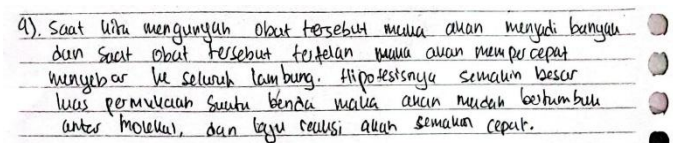 a). Saat kita mengunyah obat tersebut maka akan menjadi banyak
dan saat obat tersebut tertelan maka akan mempercepat
menyebar ke seluruh lambung. Hipotesisnya semakin besar
luas permukaan suatu benda maka akan mudah bertumbuk
antar molekul, dan laju reaksi akan semakin cepat.